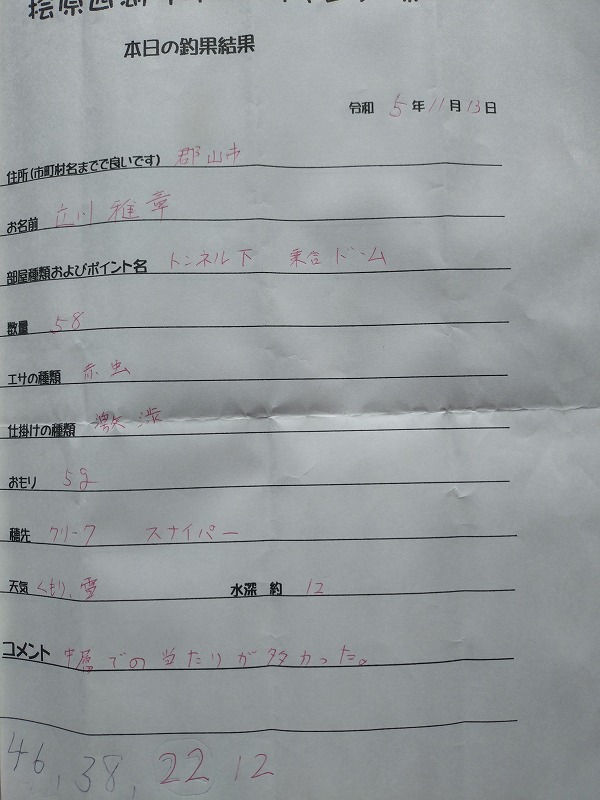 本日の釣果結果
令和 5年11月13日
住所(市町村名までで良いです) 郡山市
お名前 立川 雅章
部屋種類およびポイント名 トンネル下 乗合ドーム
数量 58
エサの種類 赤虫
仕掛けの種類 激渋
おもり 5g
穂先 クリーク スナイパー
天気 くもり、雪 水深 約 12
コメント 中層での当たりが多かった。
46, 38, 22 12